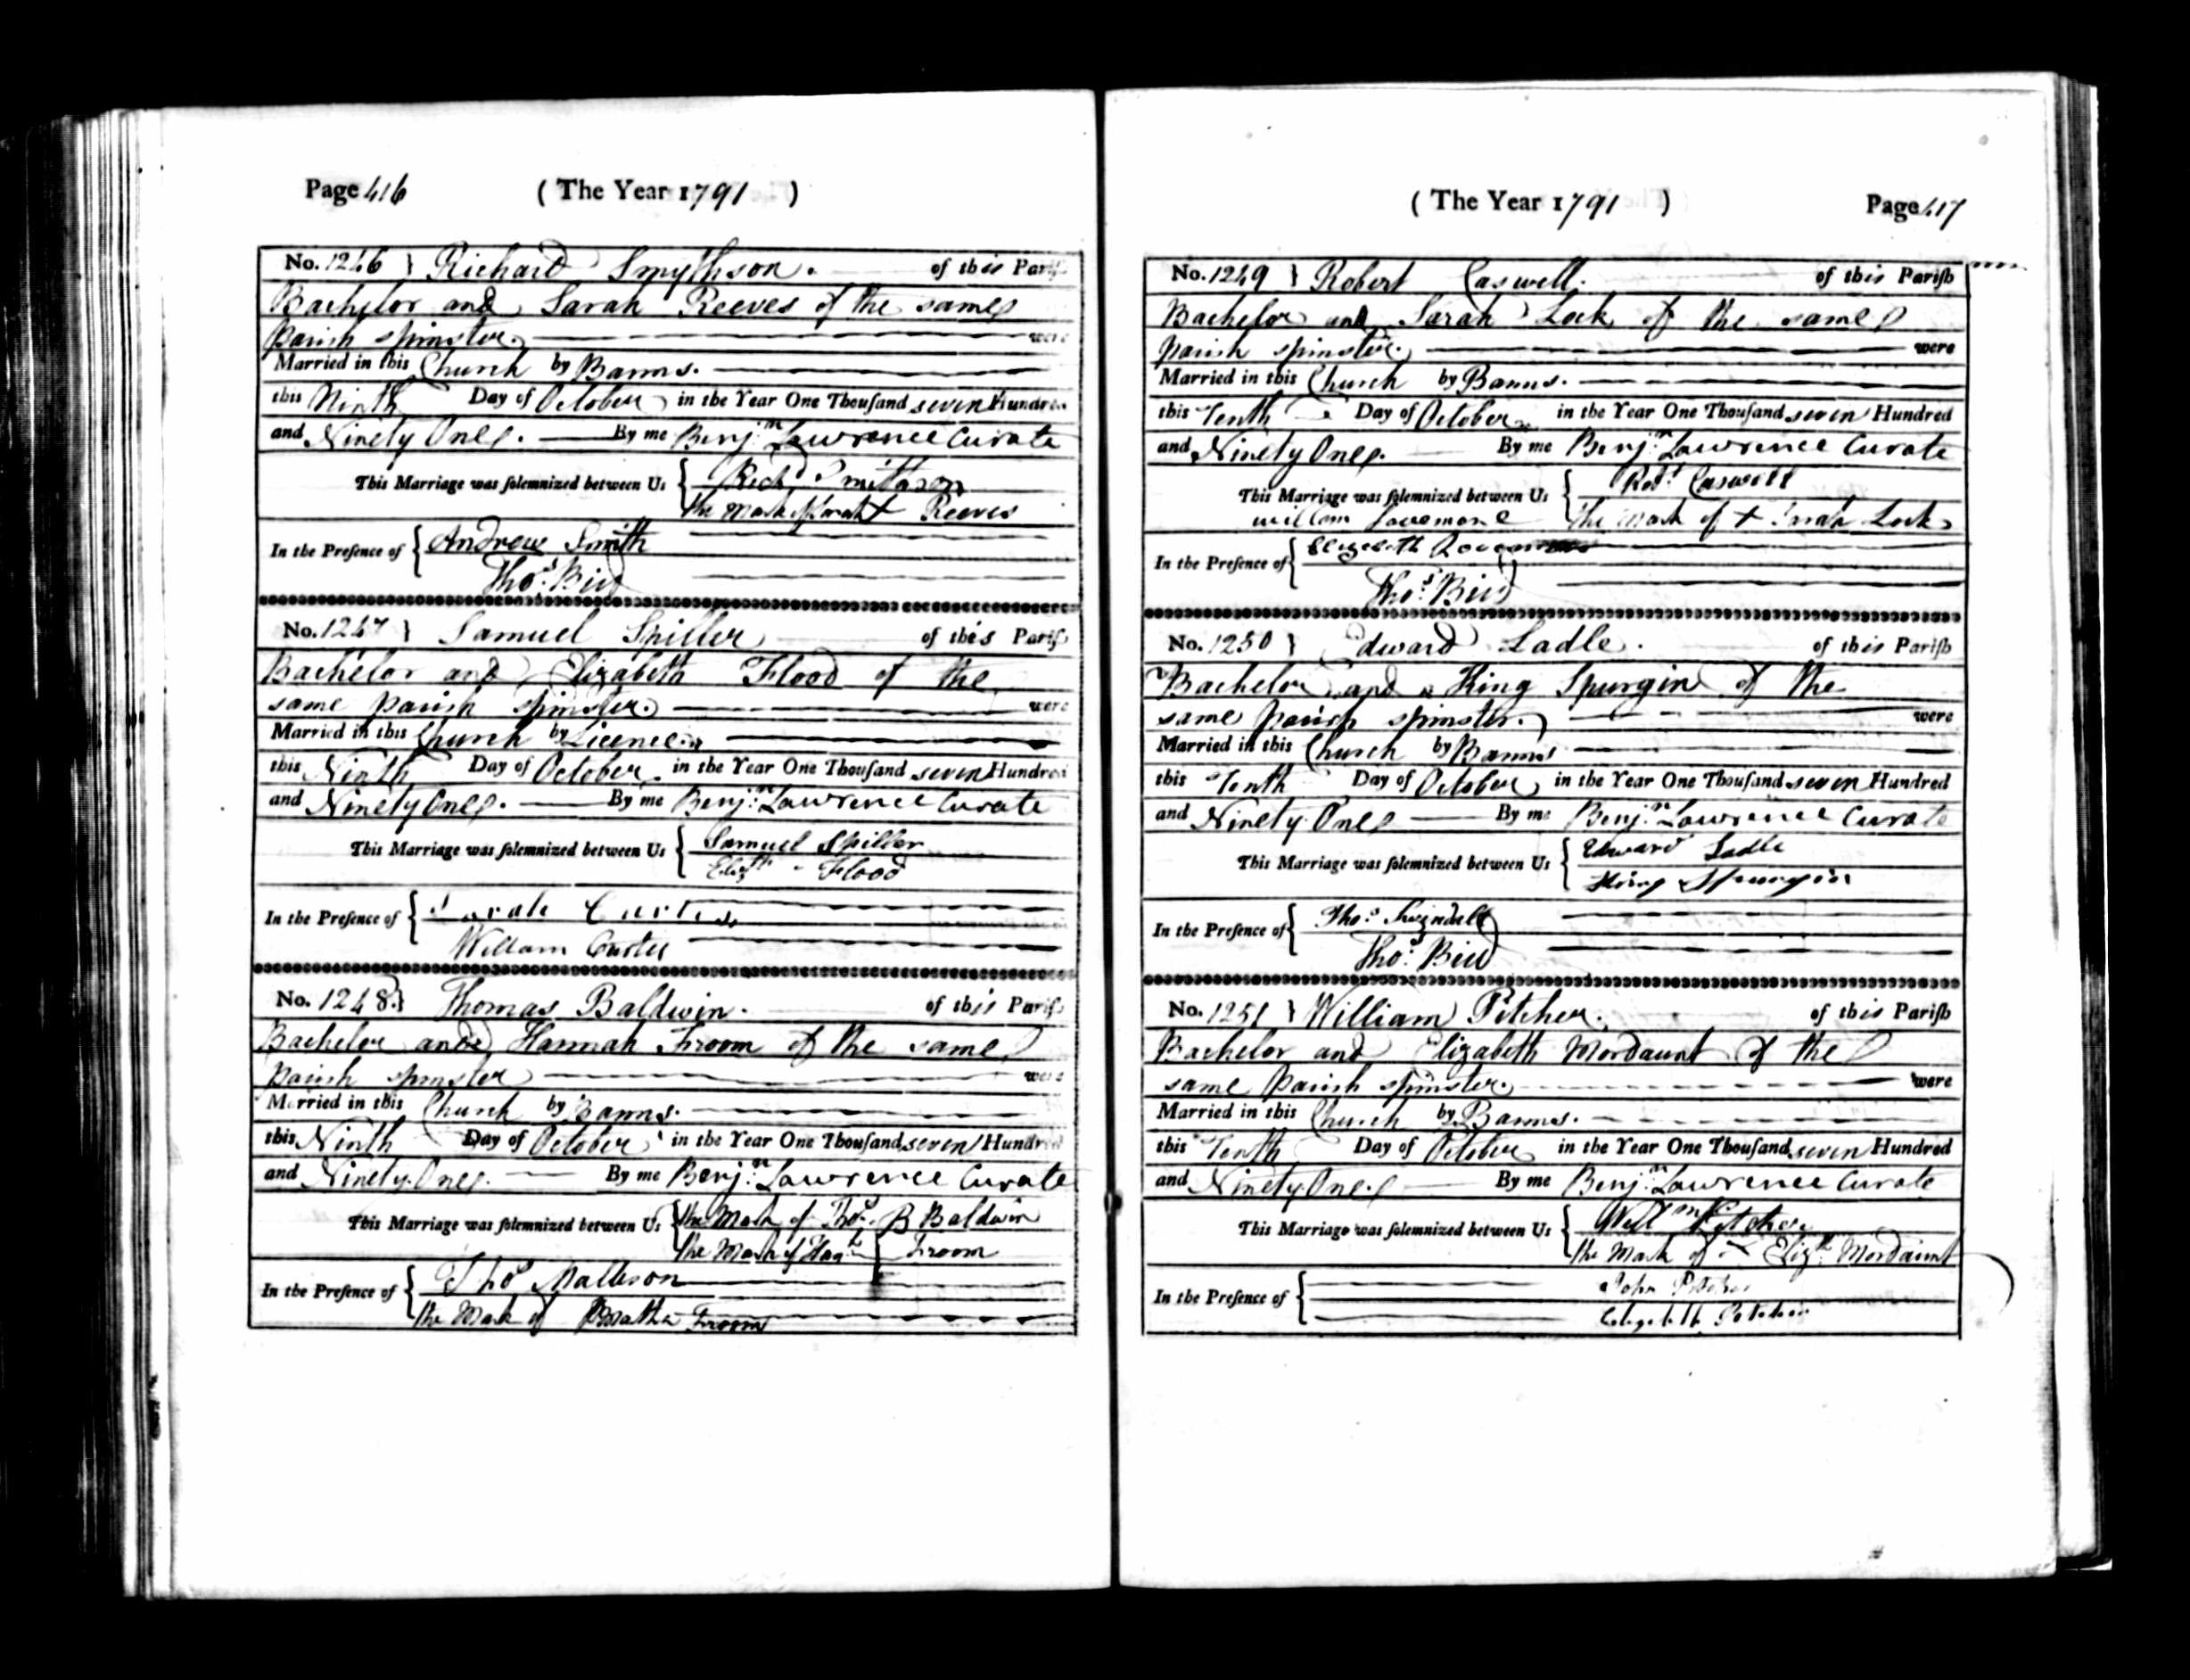 Page 416 ( The Year 1791 )
No. 1246 } Richard Smythson. of this Parish
Bachelor and Sarah Reeves of the same
Parish spinster. were
Married in this Church by Banns.
this Ninth Day of October in the Year One Thousand seven Hundred
and Ninety One. By me Benjn. Lawrence Curate
This Marriage was solemnized between Us { Richd Smithson
the Mark of Sarah + Reeves
In the Presence of { Andrew Smith
Thos. Bird
No. 1247 } Samuel Spiller of this Parish
Bachelor and Elizabeth Flood of the
same parish spinster. were
Married in this Church by Licence.
this Ninth Day of October in the Year One Thousand seven Hundred
and Ninety One. By me Benjn. Lawrence Curate
This Marriage was solemnized between Us { Samuel Spiller
Elizth Flood
In the Presence of { Sarah Curtis
William
No. 1248. } Thomas Baldwin. of this Parish
Bachelor and Hannah Froom of the same
Parish spinster were
Married in this Church by Banns.
this Ninth Day of October in the Year One Thousand seven Hundred
and Ninety One. By me Benjn. Lawrence Curate
This Marriage was solemnized between Us { the Mark of Thos. B Baldwin
the Mark of Hanh [ Froom
In the Presence of { Thos
the Mark of Froom
( The Year 1791 ) Page 417
No. 1249 } Robert Caswell. of this Parish
Bachelor and Sarah Lock of the same
parish spinster. were
Married in this Church by Banns.
this Tenth Day of October in the Year One Thousand seven Hundred
and Ninety One. By me Benjn. Lawrence Curate
This Marriage was solemnized between Us { Robt. Caswell
william the Mark of + Sarah Lock
In the Presence of { Elizebeth
Thos. Bird
No. 1250 } Edward Ladle. of this Parish
Bachelor and King Spurgin of the
same parish spinster. were
Married in this Church by Banns
this Tenth Day of October in the Year One Thousand seven Hundred
and Ninety One By me Benjn. Lawrence Curate
This Marriage was solemnized between Us { Edward Ladle
King Spurgin
In the Presence of { Thos. Swindell
Thos. Bird
No. 1251 } William Pitcher. of this Parish
Bachelor and Elizabeth Mordaunt of the
same Parish spinster. were
Married in this Church by Banns.
this Tenth Day of October in the Year One Thousand seven Hundred
and Ninety One. By me Benjn. Lawrence Curate
This Marriage was solemnized between Us { Willm Pitcher
the Mark of + Elizth. Mordaunt
In the Presence of { John Pitcher
Elizabeth Pitcher